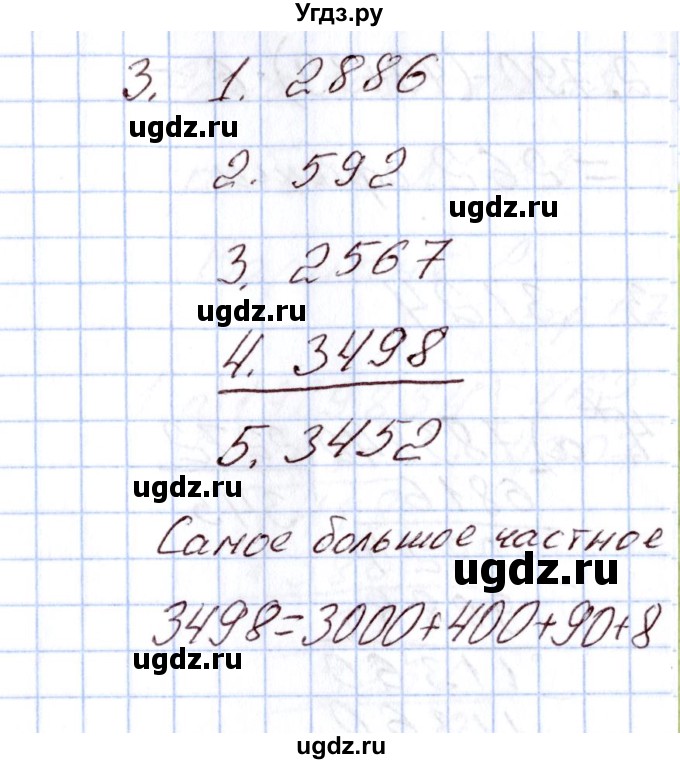 Угдз.ру
3. 1. 2886
ugdz.ru
2. 592
ugdz.ru
3. 2567
ugdz.ru
4. 3498
5. 3452
ugdz.ru
Самое большое частное
ugdz.ru
3498=3000+400+90+8
ugdz.ru
ugdz.ru